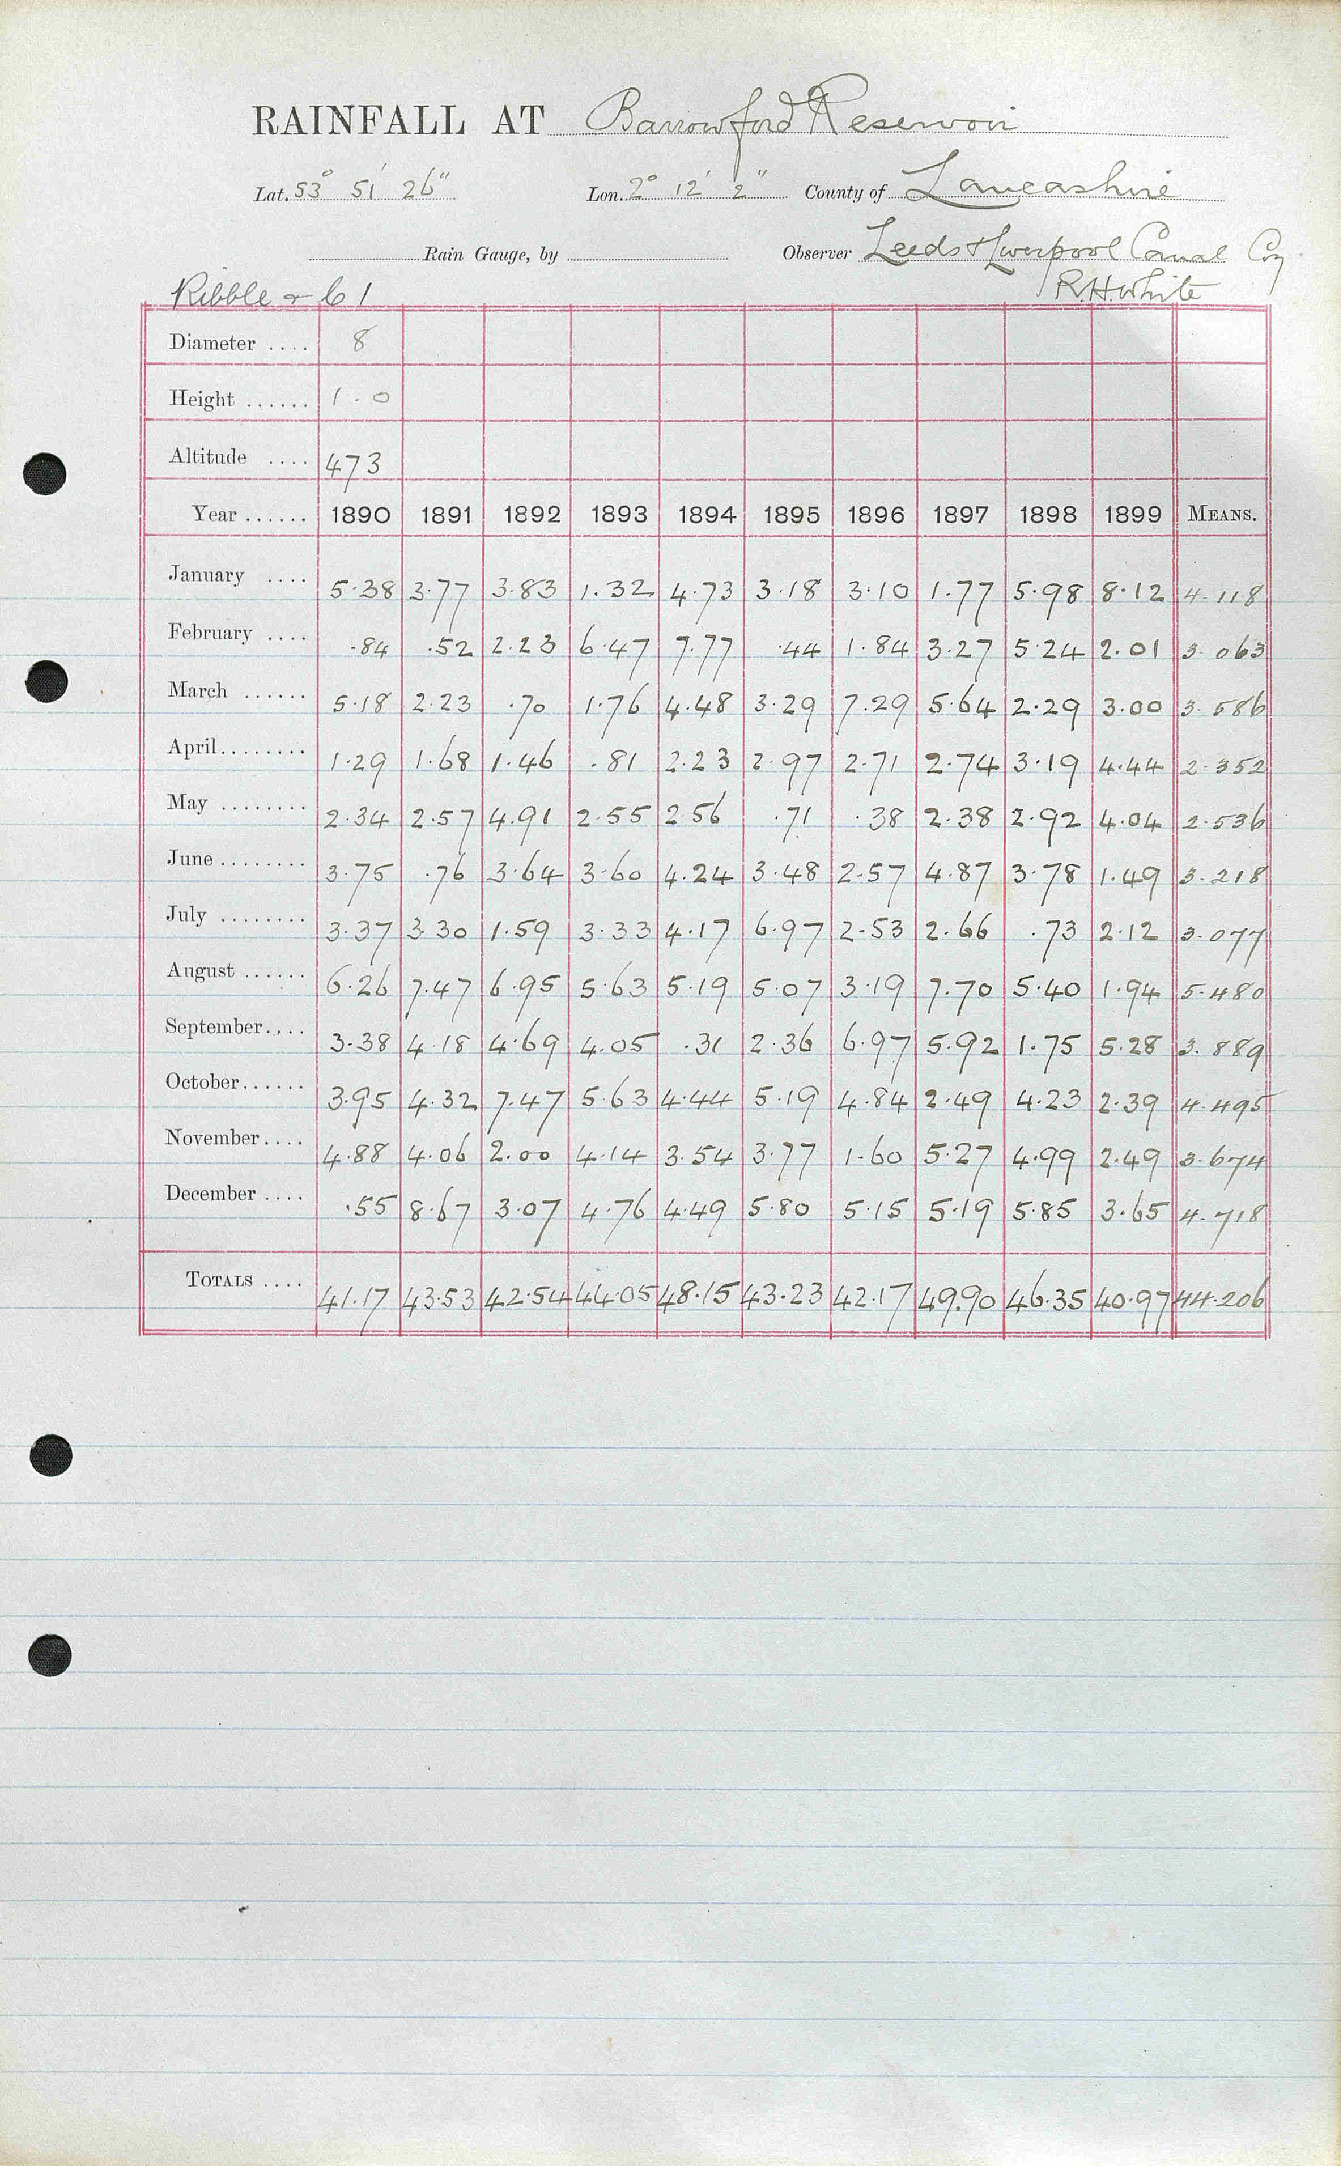 RAINFALL AT Barrowford Reservoir
Lat. 53° 51' 26" Lon. 2° 12' 2" County of Lancashire
Rain Gauge, by Observer Leeds & Liverpool Canal Coy
Ribble & C 1 R.H. White
Diameter .... 8
Height ...... 1.0
Altitude .... 473
Year ...... 1890 1891 1892 1893 1894 1895 1896 1897 1898 1899 MEANS.
January .... 5.38 3.77 3.83 1.32 4.73 3.18 3.10 1.77 5.98 8.12 4.118
February .... .84 .52 2.23 6.47 7.77 .44 1.84 3.27 5.24 2.01 3.063
March ...... 5.18 2.23 .70 1.76 4.48 3.29 7.29 5.64 2.29 3.00 3.586
April ........ 1.29 1.68 1.46 .81 2.23 2.97 2.71 2.74 3.19 4.44 2.352
May ........ 2.34 2.57 4.91 2.55 2.56 .71 .38 2.38 2.92 4.04 2.536
June ........ 3.75 .76 3.64 3.60 4.24 3.48 2.57 4.87 3.78 1.49 3.218
July ........ 3.37 3.30 1.59 3.33 4.17 6.97 2.53 2.66 .73 2.12 3.077
August ...... 6.26 7.47 6.95 5.63 5.19 5.07 3.19 7.70 5.40 1.94 5.480
September .... 3.38 4.18 4.69 4.05 .31 2.36 6.97 5.92 1.75 5.28 3.889
October ...... 3.95 4.32 7.47 5.63 4.44 5.19 4.84 2.49 4.23 2.39 4.495
November .... 4.88 4.06 2.00 4.14 3.54 3.77 1.60 5.27 4.99 2.49 3.674
December .... .55 8.67 3.07 4.76 4.49 5.80 5.15 5.19 5.85 3.65 4.718
TOTALS .... 41.17 43.53 42.54 44.05 48.15 43.23 42.17 49.90 46.35 40.97 44.206